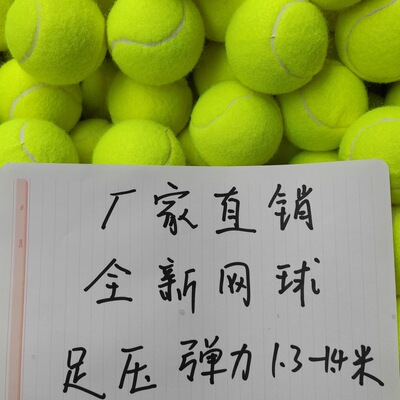 厂家直销
全新网球
足压 弹力1.3-1.4米